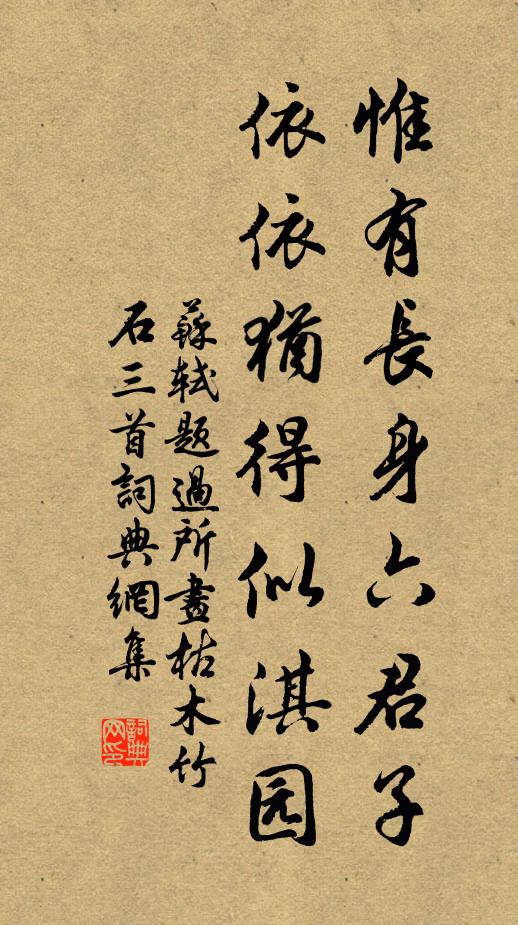 惟有長身六君子
依依猶得似淇园
蘇轼题過所畫枯木竹
石三首詞典網集
詞典
网印